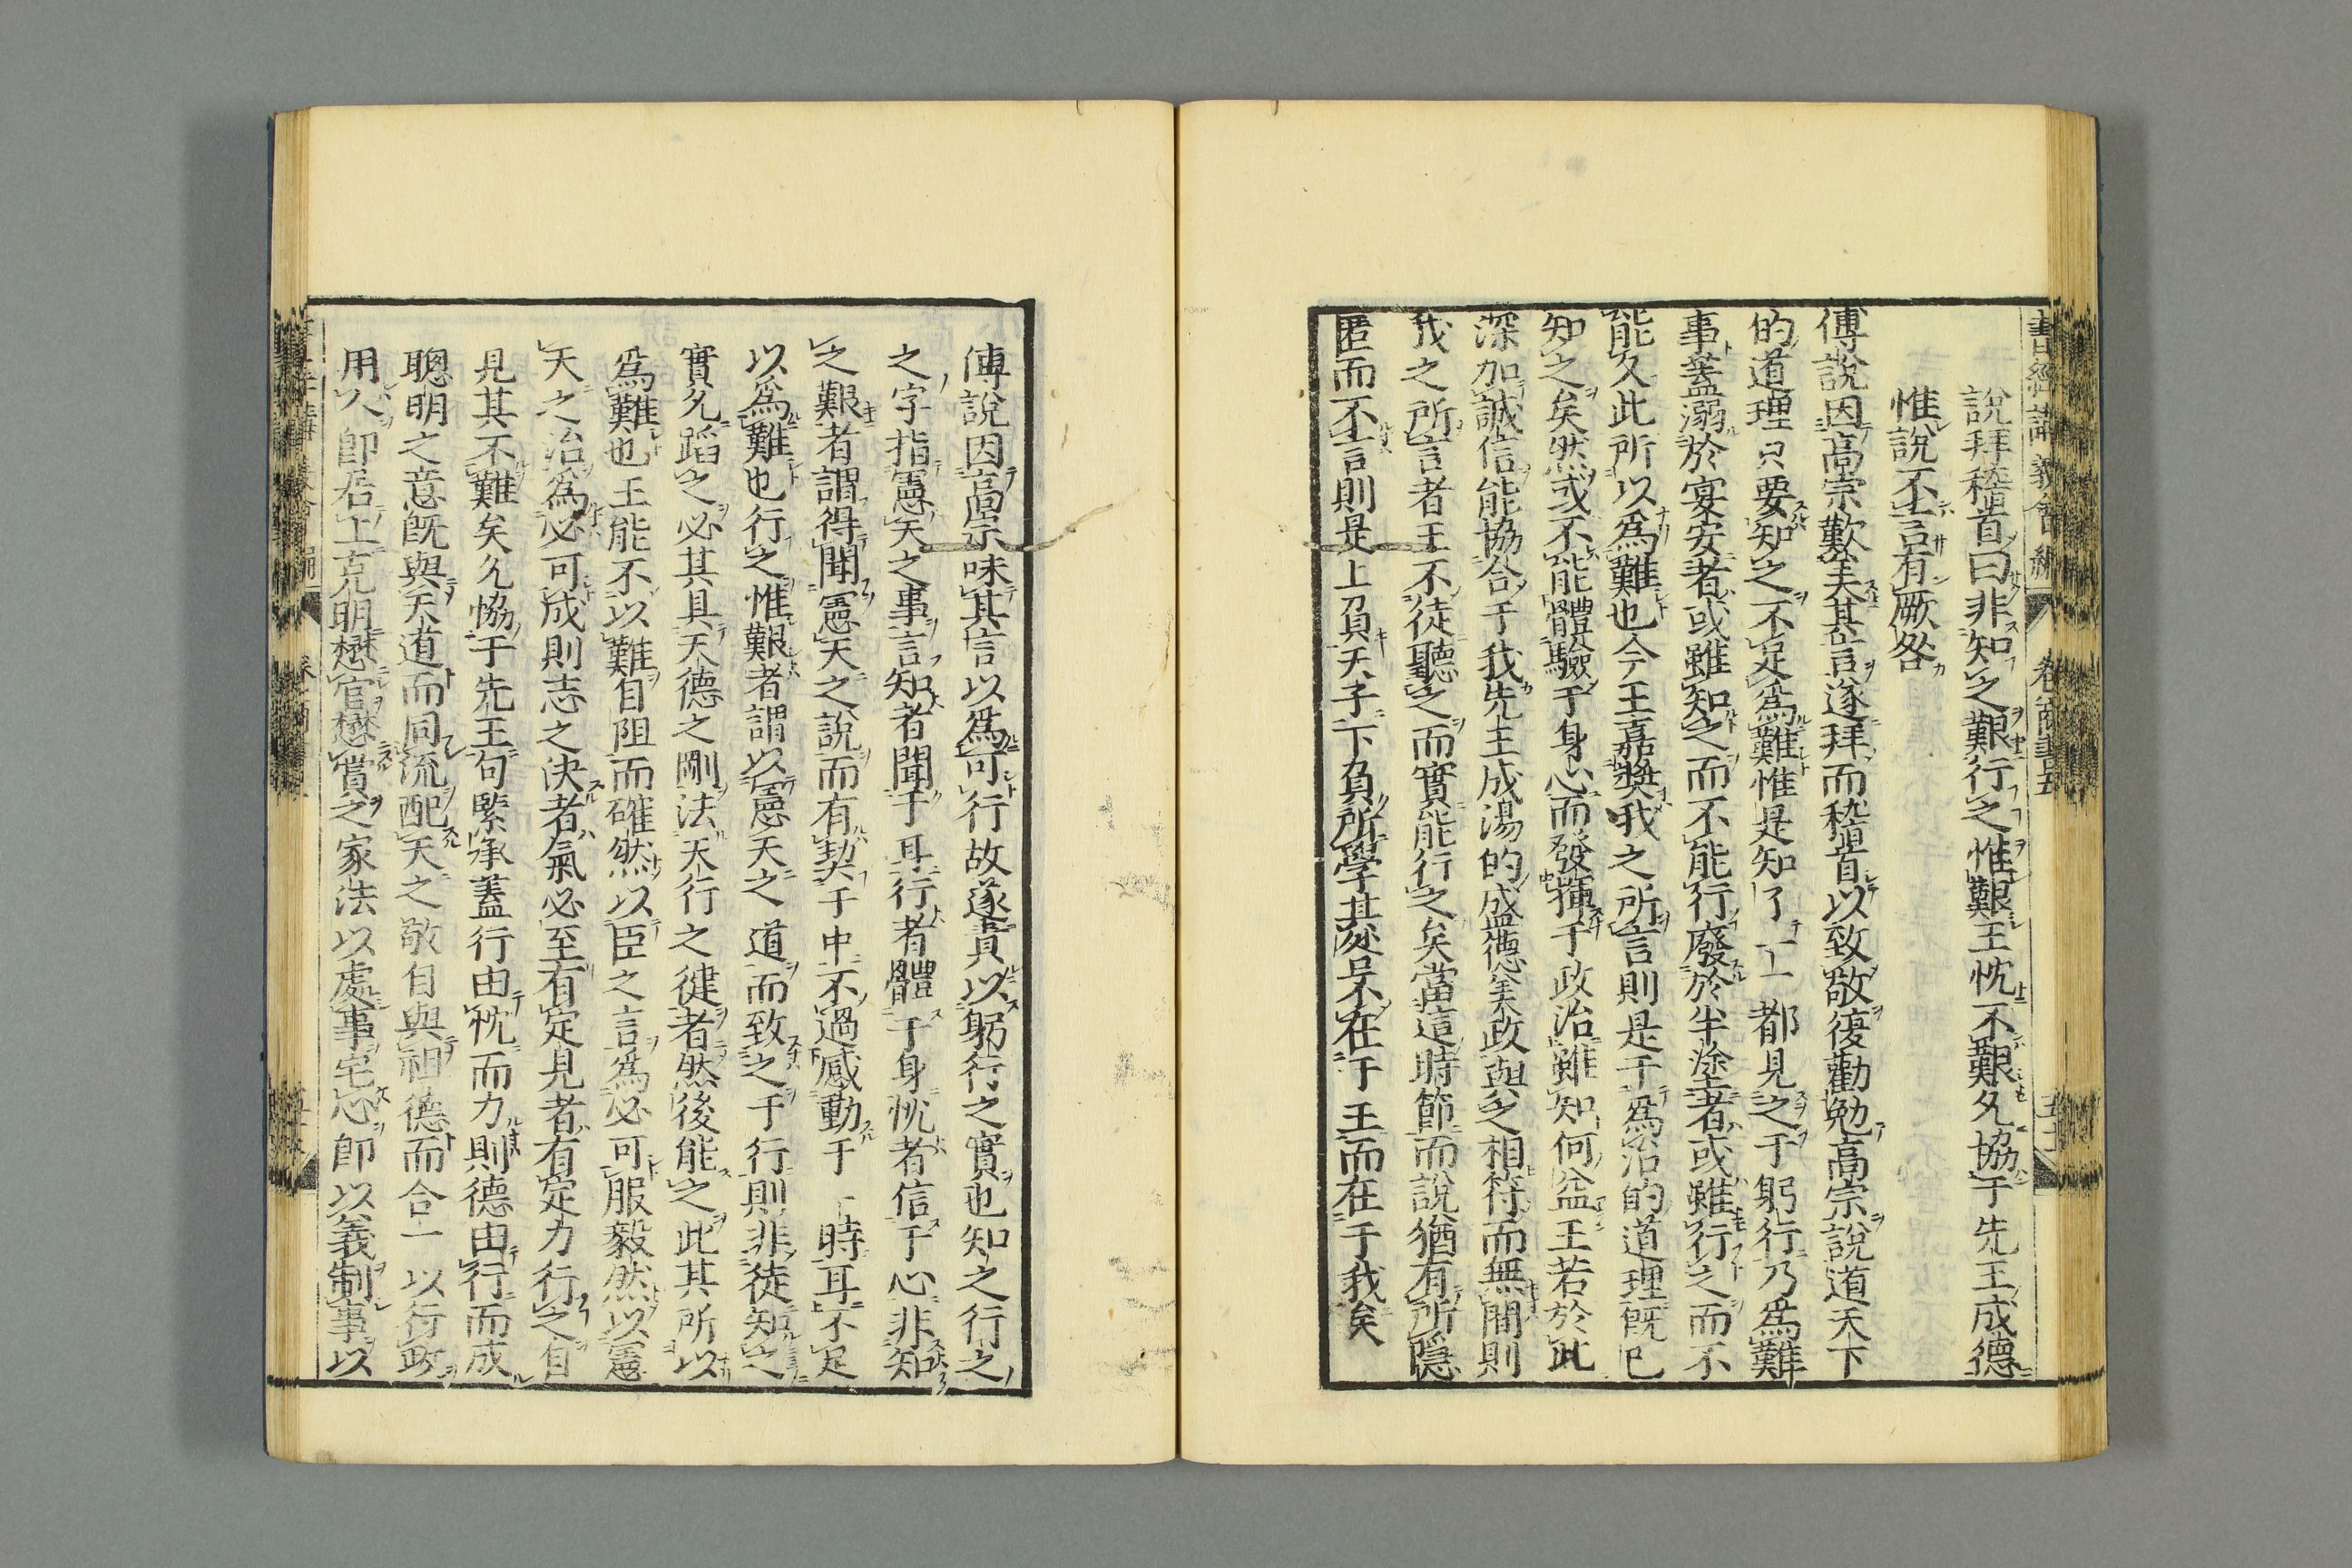 說拜稽首曰非知之艱行之惟艱王忱不艱允協于先王成德
惟說不言有厥咎
傅說因高宗歎美其言遂拜而稽首以致敬復勸勉高宗說道天下
的道理只要知之不足爲難惟是知了一一都見之于躬行乃爲難
事蓋溺於宴安者或雖知之而不能行廢於半塗者或雖行之而不
能久此所以爲難也今王嘉奬我之所言則是于爲治的道理旣已
知之矣然或不能體驗于身心而發揮于政治雖知何益王若於此
深加誠信能協合于我先王成湯的盛德美政與之相符而無間則
我之所言者王不徒聽之而實能行之矣當這時節而說猶有所隱
匿而不言則是上負天子下負所學其咎不在于王而在于我矣
傅說因高宗味其言以爲可行故遂責以躬行之實也知之行之
之字指憲天之事言知者聞于耳行者體于身忱者信于心非知
之艱者謂得聞憲天之說而有契于中不過感動于一時耳不足
以爲難也行之惟艱者謂以憲天之道而致之于行則非徒知之
實允蹈之必其具天德之剛法天行之健者然後能之此其所以
爲難也王能不以難自阻而確然以臣之言爲必可服毅然以憲
天之治爲必可成則志之决者氣必至有定見者有定力行之自
見其不難矣允恊于先王句緊承蓋行由忱而力則德由行而成
聰明之意旣與天道而同流配天之敬自與祖德而合一以行政
用人卽居上克明懋官懋賞之家法以處事宅心卽以義制事以